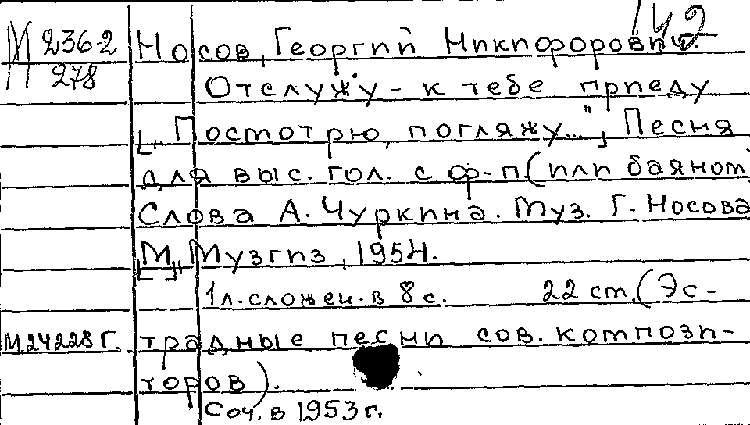 142
М 236-2 Носов, Георгий Никифорович.
278 Отслужу - к тебе приеду
[„Посмотрю, погляжу...”] Песня
для выс. гол. с ф-п (или баяном
Слова А. Чуркина. Муз. Г. Носова
[М.], Музгиз, 1954.
1 л. сложен. в 8 с. 22 cm. (Эс-
М24228г. традные песни сов. компози-
торов).
Соч. в 1953 г.